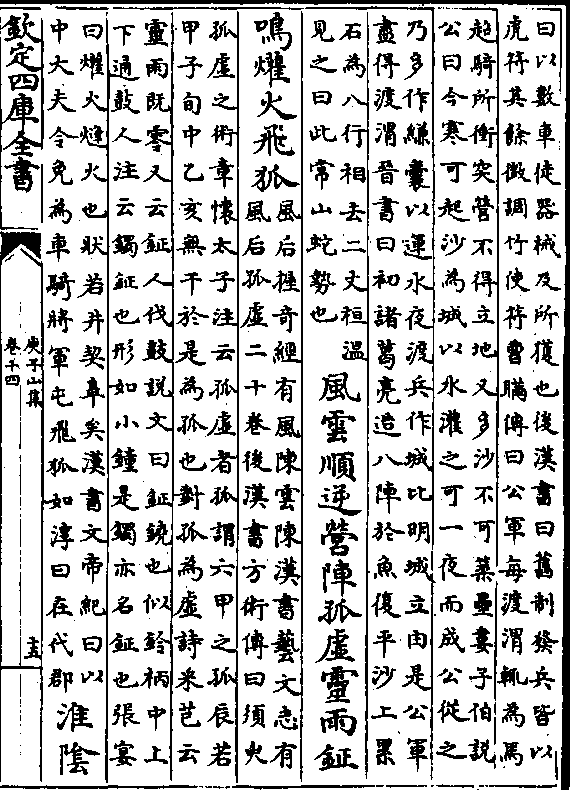 曰以數車徒器械及所獲也後漢書曰舊制發兵皆以
虎符其餘徵調竹使符曹瞞傳曰公軍每渡渭輒為馬
超騎所衝突營不得立地又多沙不可築壘婁子伯說
公曰今寒可起沙為城以水灌之可一夜而成公從之
乃多作縑囊以運水夜渡兵作城比明城立由是公軍
盡得渡渭晉書曰初諸葛亮造八陣於魚復平沙上累
石為八行相去二丈桓溫
見之曰此常山蛇勢也
風雲順逆營陣孤虛靈雨鉦
鳴爟火飛狐
風后握奇經有風陳雲陳漢書藝文志有
風后孤虛二十卷後漢書方術傳曰須火
孤虛之術章懷太子注云孤虛者孤謂六甲之孤辰若
甲子旬中乙亥無干於是為孤也對孤為虛詩米芑云
靈雨既零又云鉦人伐鼓說文曰鉦鐃也似鈴柄中上
下通鼓人注云鐲鉦也形如小鐘是鐲亦名鉦也張宴
曰爟火㷭火也狀若井契皋矣漢書文帝紀曰以
中大夫令免為車騎將軍屯飛狐如淳曰在代郡
淮陰
欽定四庫全書
庾子山集
卷十四
十五